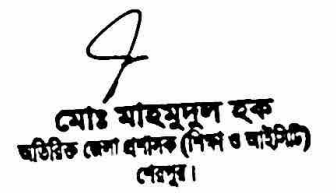 মোঃ মাহমুদুল হক
অতিরিক্ত জেলা প্রশাসক (শিক্ষা ও আইসিটি)
শেরপুর।